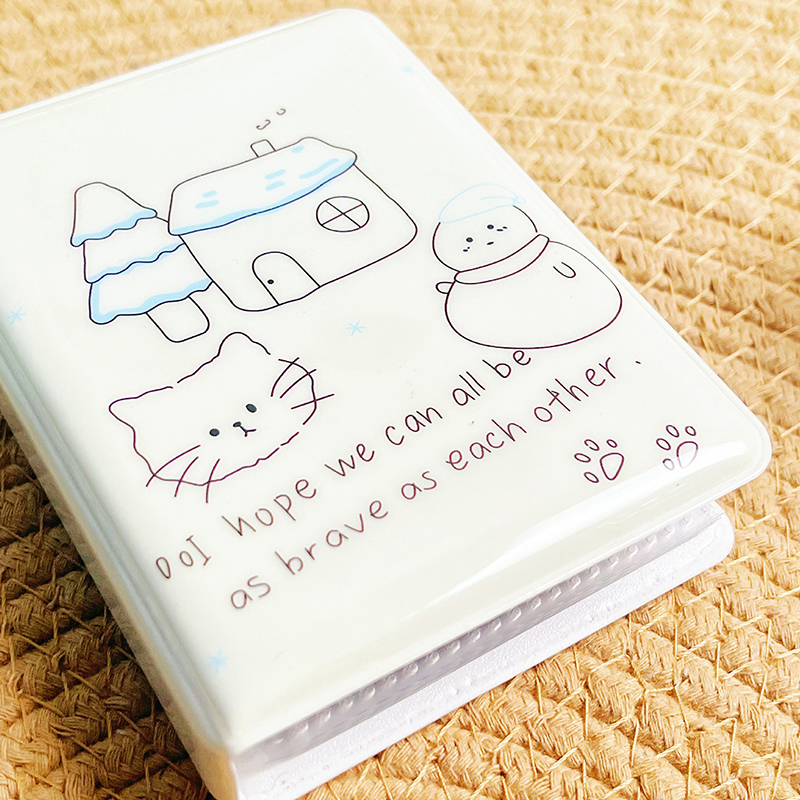 OOI hope we can all be
as brave as each other.